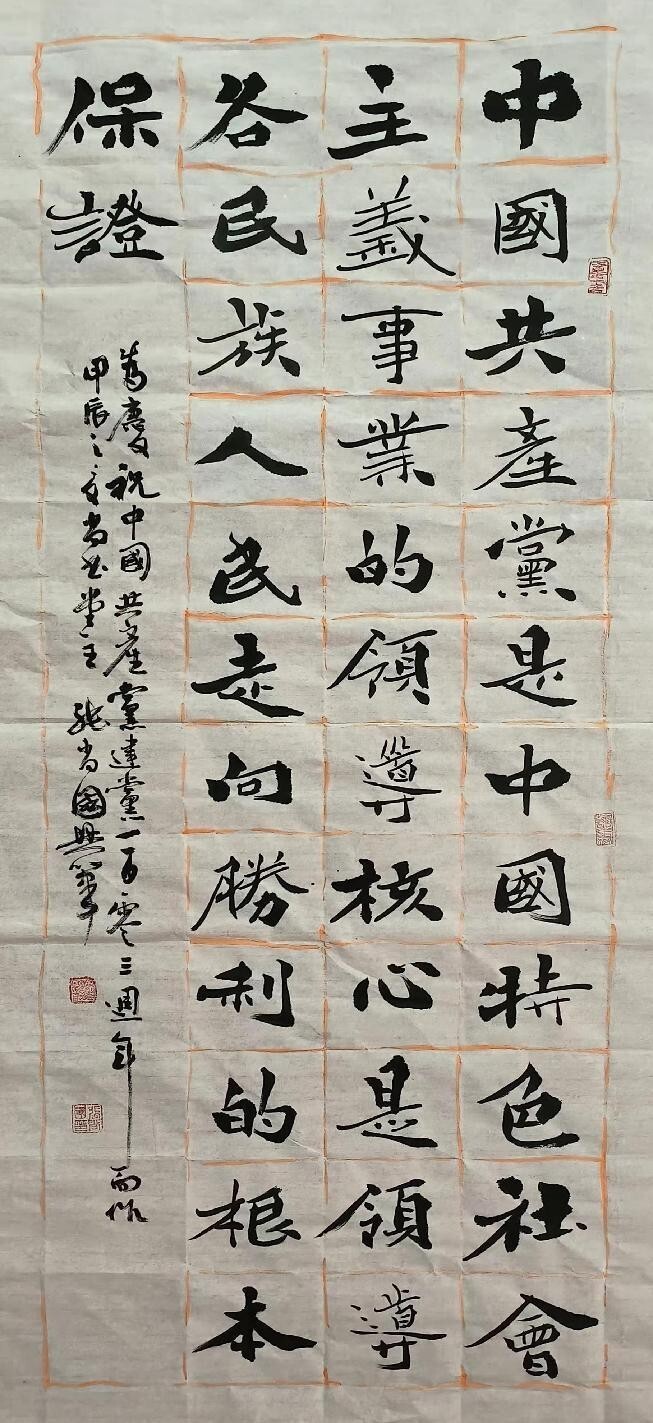 中國共產黨是中國特色社會
主義事業的領導核心是領導
各民族人民走向勝利的根本
保證
為慶祝中國共產黨建黨一百零三週年而作
甲辰之夏尚書堂主張尚國興筆